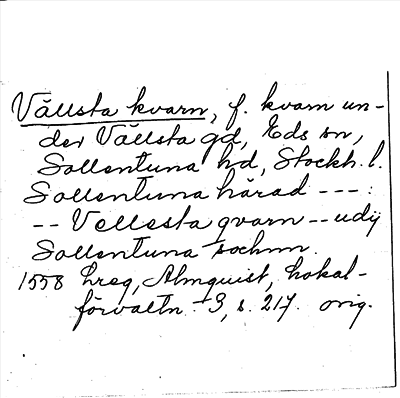 Vällsta kvarn, f. kvarn un-
der Vällsta gd, Eds sn,
Sollentuna hd, Stockh. l.
Sollentuna härad ---:
-- Vellesta qvarn -- udij
Sollentuna sochnn.
1558 hreg, Almquist, Lokal-
förvaltn. 3, s. 217. orig.